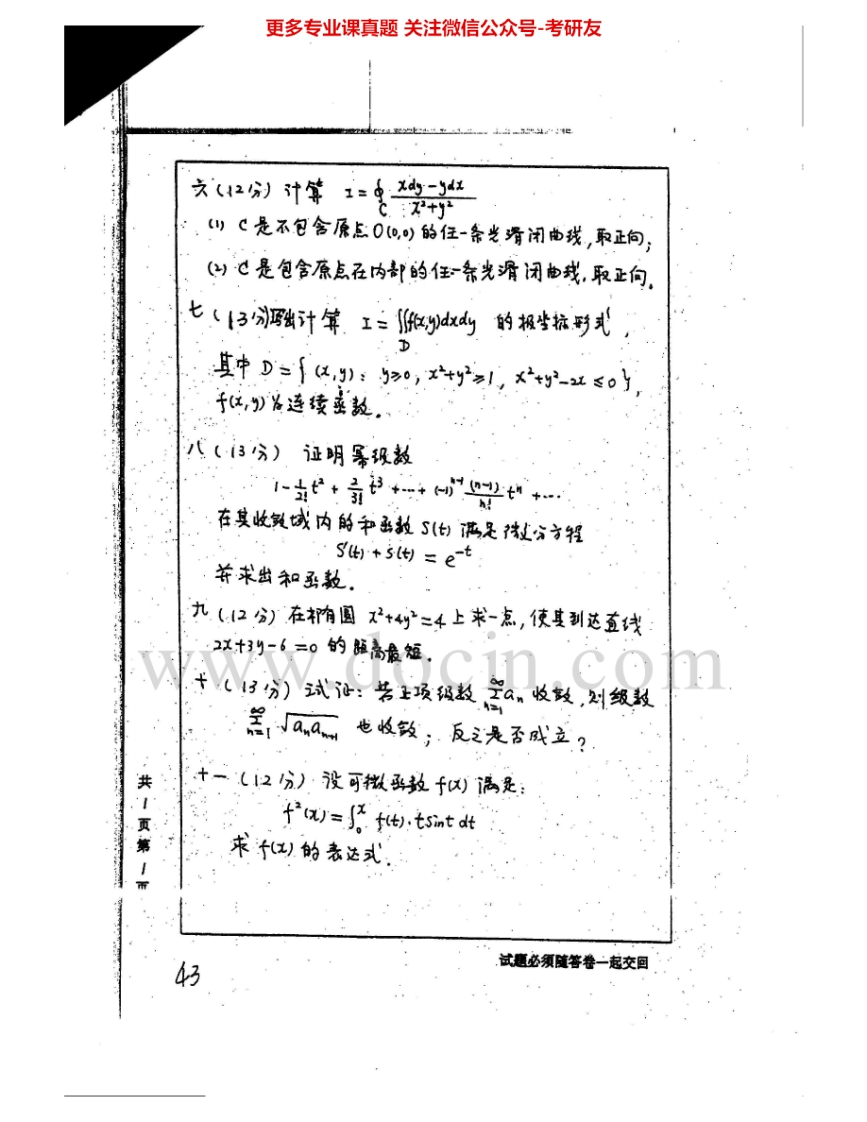 更多专业课真题 关注微信公众号-考研友
六(12分) 计算 I=∮_C (xdy-ydx)/(x²+y²)
(1) C是不包含原点O(0,0)的任一条光滑闭曲线,取正向;
(2) C是包含原点在内部的任一条光滑闭曲线,取正向.
七(13分)写出计算 I=∬_D f(x,y)dxdy 的极坐标形式,
其中 D={(x,y): y≥0, x²+y²≥1, x²+y²-2x≤0},
f(x,y)为连续函数.
八(13分) 证明幂级数
1-1/2! t²+2/3! t³+…+(-1)^{n-1} (n-1)/n! tⁿ+…
在其收敛域内的和函数S(t)满足微分方程
S'(t)+S(t)=e^{-t}
并求出和函数.
九(12分)在椭圆 x²+4y²=4上求一点,使其到达直线
2x+3y-6=0的距离最短.
十(13分)试证:若正项级数 ∑_{n=1}^∞ a_n 收敛,则级数
∑_{n=1}^∞ √(a_n a_{n+1}) 也收敛;反之是否成立?
十一(12分)设可微函数f(x)满足:
f²(x)=∫_0^x f(t)·tsint dt
求f(x)的表达式.
共1页第1页
试题必须随答卷一起交回
43
www.docin.com